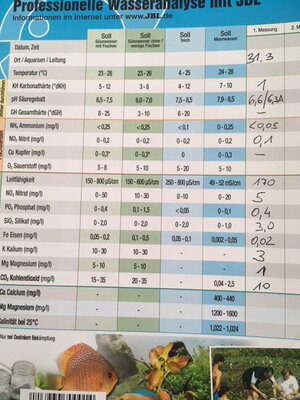 Professionelle Wasseranalyse mit JBL
Informationen im Internet unter www.JBL.de
Soll Süsswasser mit Fischen Soll Süsswasser ohne / wenige Fischen Soll Teich Soll Meerwasser 1. Messung 2. M
Datum, Zeit
Ort / Aquarium / Leitung 31.3
Temperatur (°C) 23 - 28 23 - 28 4 - 25 24 - 28
KH Karbonathärte (°dKH) 5 - 12 3 - 8 4 - 12 7 - 10 1
pH Säuregehalt 6,5-7,5 6,0 - 7,0 7,5 - 8,5 7,9 - 8,5 6,6/6,3
GH Gesamthärte (°dGH) 8 - 25 3 - 10 6 - 20 —
NH₄ Ammonium (mg/l) < 0,25 < 0,25 < 0,1 < 0,1 <0,05
NO₂ Nitrit (mg/l) < 0,2 < 0,2 < 0,1 < 0,1 0,1
Cu Kupfer (mg/l) 0 - 0,3* 0 - 0,3* 0 0 —
O₂ Sauerstoff (mg/l) 5 - 8 5 - 8 5 - 20 5 - 10
Leitfähigkeit 150 - 800 µS/cm 150 - 600 µS/cm 250 - 800 µS/cm 49 - 52 mS/cm 170
NO₃ Nitrat (mg/l) 0 - 50 10 - 30 0 - 10 0 - 20 5
PO₄ Phosphat (mg/l) 0 - 0,4 0,1 - 1,5 < 0,05 0 - 0,1 0,4
SiO₂ Silikat (mg/l) 0 - 2,0 0 - 2,0 0 - 2,0 0 - 1,0 3,0
Fe Eisen (mg/l) 0,05 - 0,2 0,1 - 0,5 0 - 0,05 0,002 - 0,05 0,02
K Kalium (mg/l) 10 - 30 10 - 30 3
Mg Magnesium (mg/l) 5 - 10 5 - 10 1
CO₂ Kohlendioxid (mg/l) 15 - 35 20 - 35 10
Ca Calcium (mg/l) 400 - 440
Mg Magnesium (mg/l) 1200 - 1600
Salinität bei 25°C 1,022 - 1,024
bei Oodinium Bekämpfung